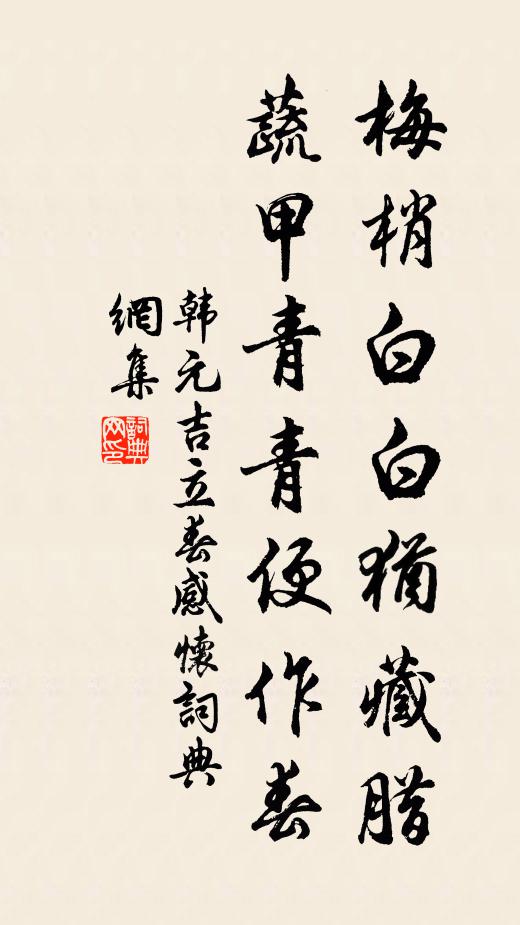 梅梢白白猶藏腊
蔬甲青青便作春
韩元吉立春感懷詞典
網集
詞典
网印